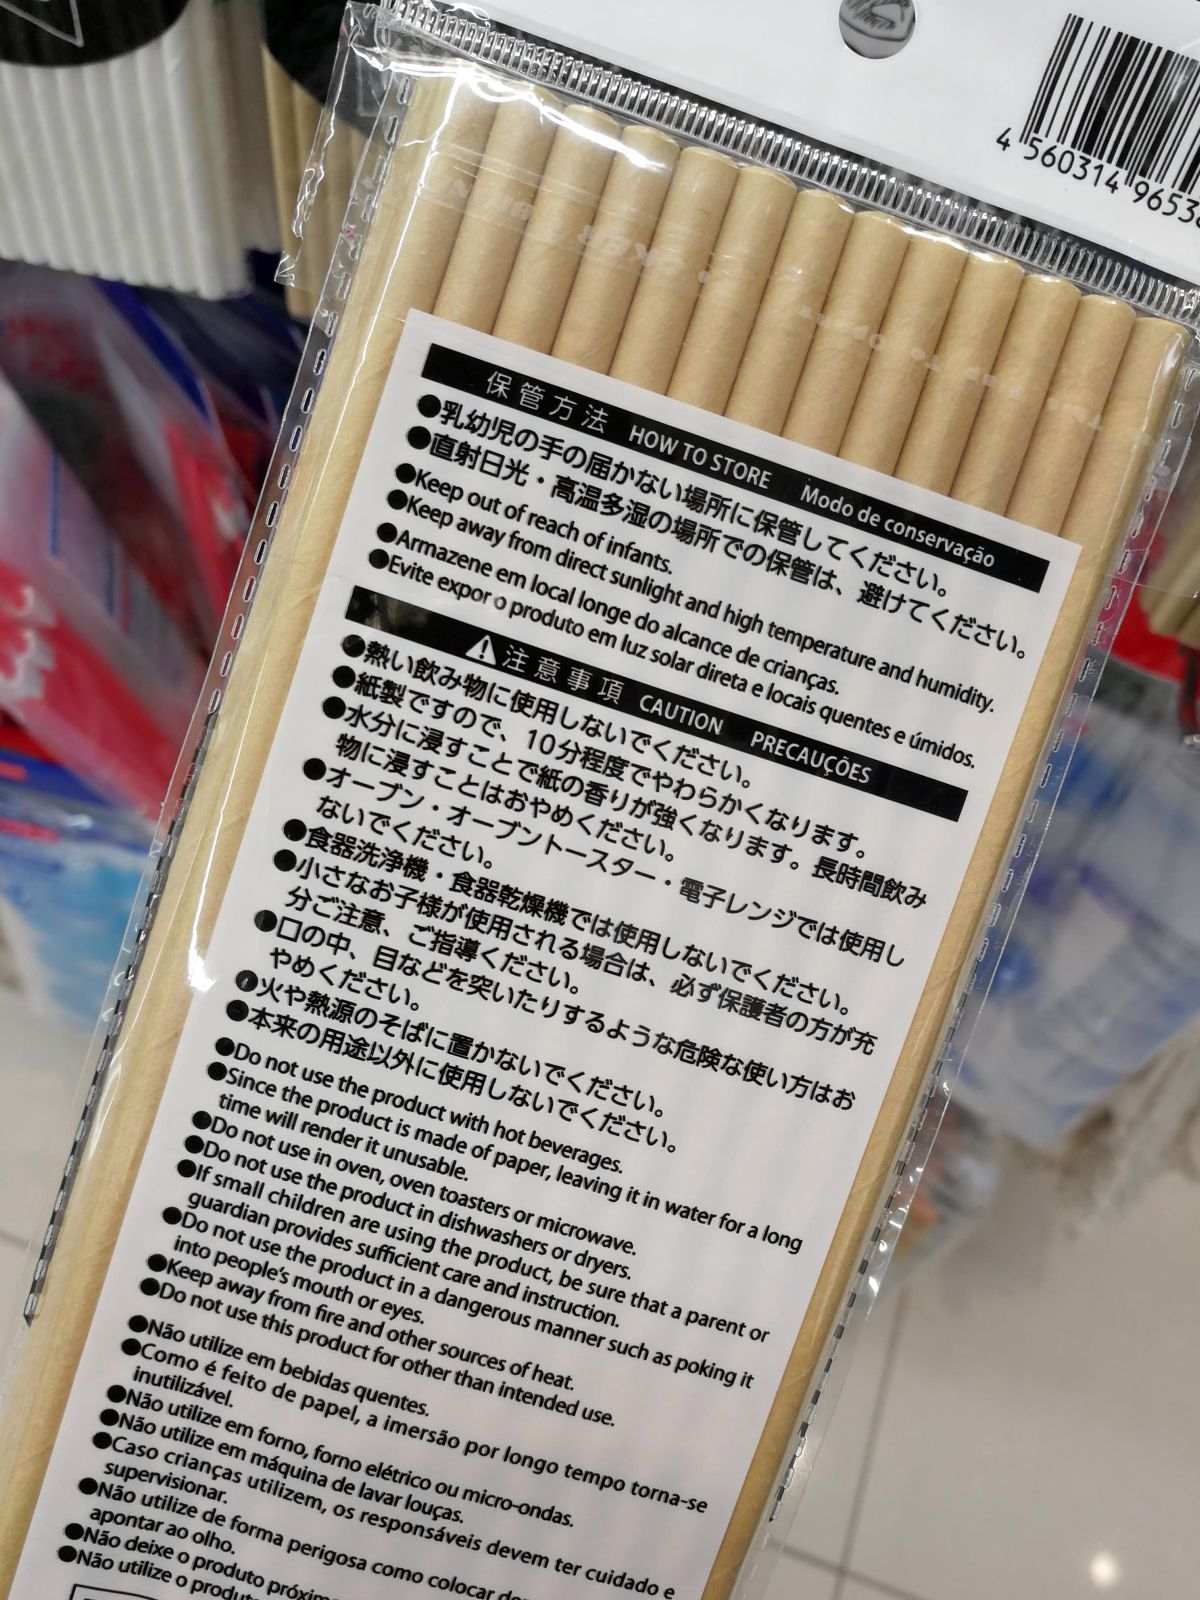 4 560314 9653
保管方法 HOW TO STORE Modo de conservação
●乳幼児の手の届かない場所に保管してください。
●直射日光・高温多湿の場所での保管は、避けてください。
●Keep out of reach of infants.
●Keep away from direct sunlight and high temperature and humidity.
●Armazene em local longe do alcance de crianças.
●Evite expor o produto em luz solar direta e locais quentes e úmidos.
注意事項 CAUTION PRECAUÇÕES
●熱い飲み物に使用しないでください。
●紙製ですので、10分程度でやわらかくなります。
●水分に浸すことで紙の香りが強くなります。長時間飲み
物に浸すことはおやめください。
●オーブン・オーブントースター・電子レンジでは使用し
ないでください。
●食器洗浄機・食器乾燥機では使用しないでください。
●小さなお子様が使用される場合は、必ず保護者の方が充
分ご注意、ご指導ください。
●口の中、目などを突いたりするような危険な使い方はお
やめください。
●火や熱源のそばに置かないでください。
●本来の用途以外に使用しないでください。
●Do not use the product with hot beverages.
●Since the product is made of paper, leaving it in water for a long
time will render it unusable.
●Do not use in oven, oven toasters or microwave.
●Do not use the product in dishwashers or dryers.
●If small children are using the product, be sure that a parent or
guardian provides sufficient care and instruction.
●Do not use the product in a dangerous manner such as poking it
into people's mouth or eyes.
●Keep away from fire and other sources of heat.
●Do not use this product for other than intended use.
●Não utilize em bebidas quentes.
●Como é feito de papel, a imersão por longo tempo torna-se
inutilizável.
●Não utilize em forno, forno elétrico ou micro-ondas.
●Não utilize em máquina de lavar louças.
●Caso crianças utilizem, os responsáveis devem ter cuidado e
supervisionar.
●Não utilize de forma perigosa como colocar
apontar ao olho.
●Não deixe o produto
●Não utilize o